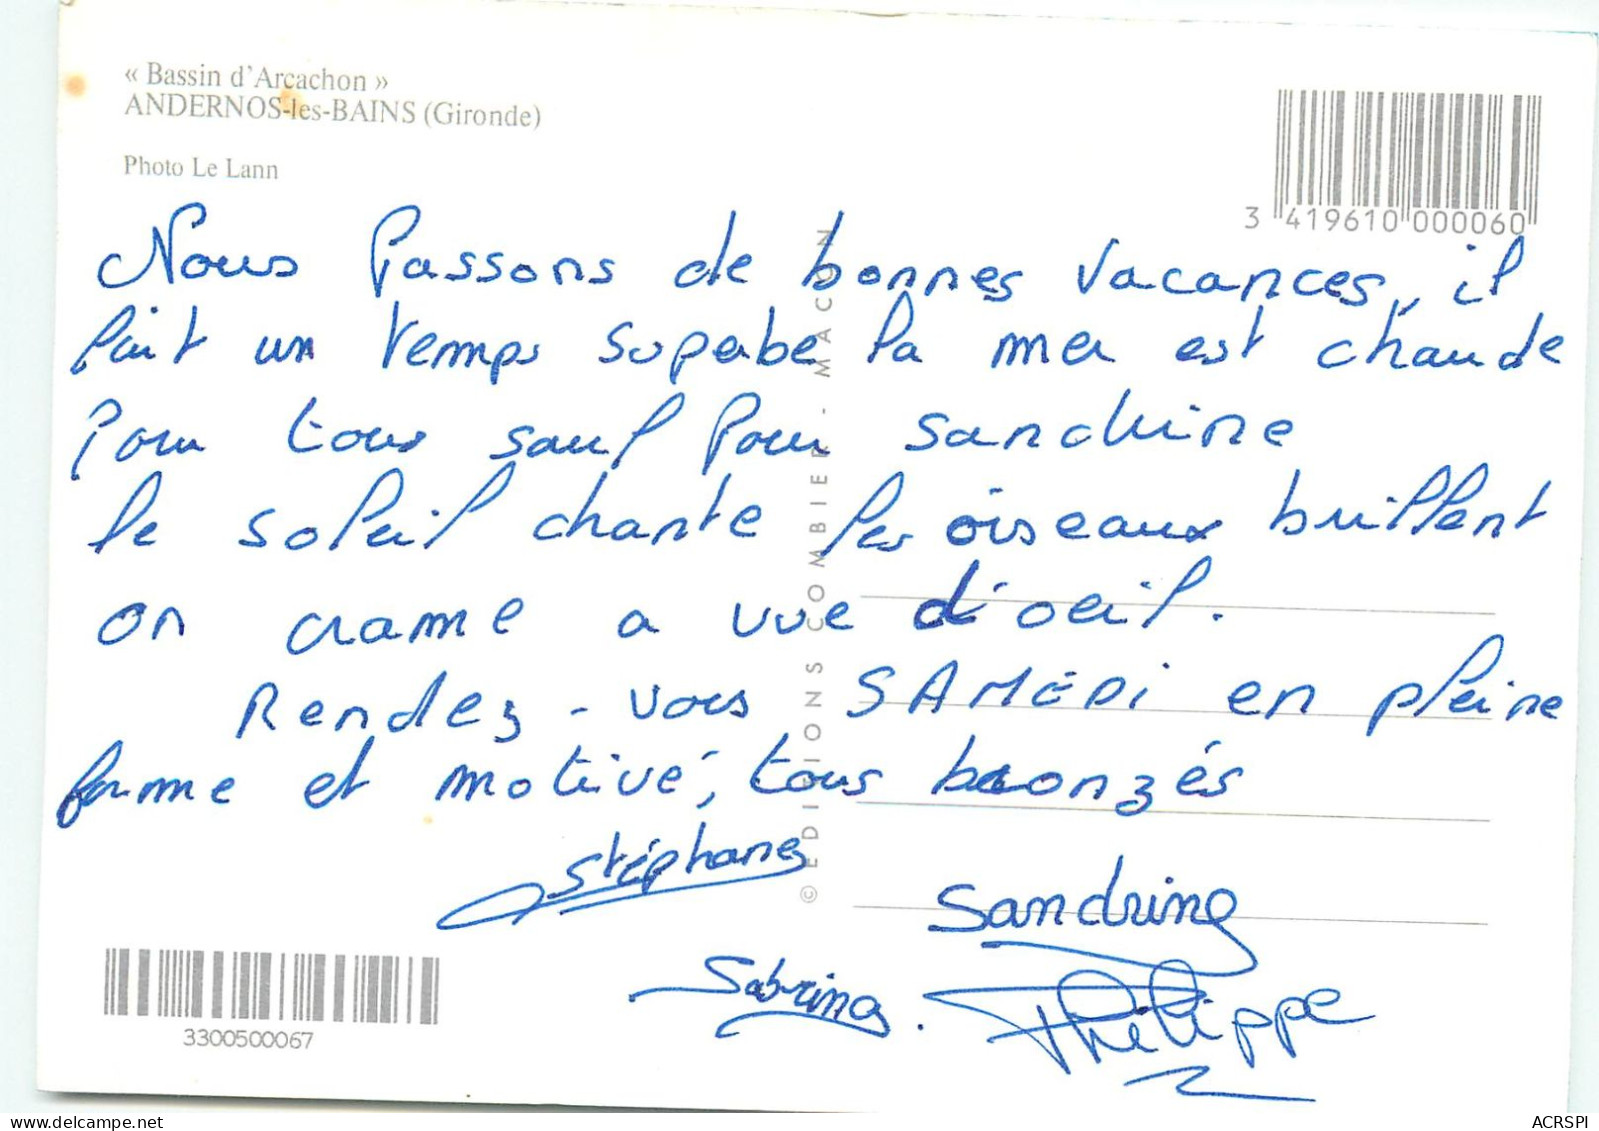 « Bassin d'Arcachon »
ANDERNOS-les-BAINS (Gironde)
Photo Le Lann
3 419610 000060
Nous passons de bonnes vacances, il
fait un temps superbe la mer est chaude
pour tous sauf pour sandrine
le soleil chante les oiseaux brillent
on crame a vue d'oeil.
Rendez-vous SAMEDI en pleine
forme et motivé, tous bronzés
Stéphane
Sandrine
Sabrina
Philippe
© EDITIONS COMBIER - MACON
3300500067
ACRSPI